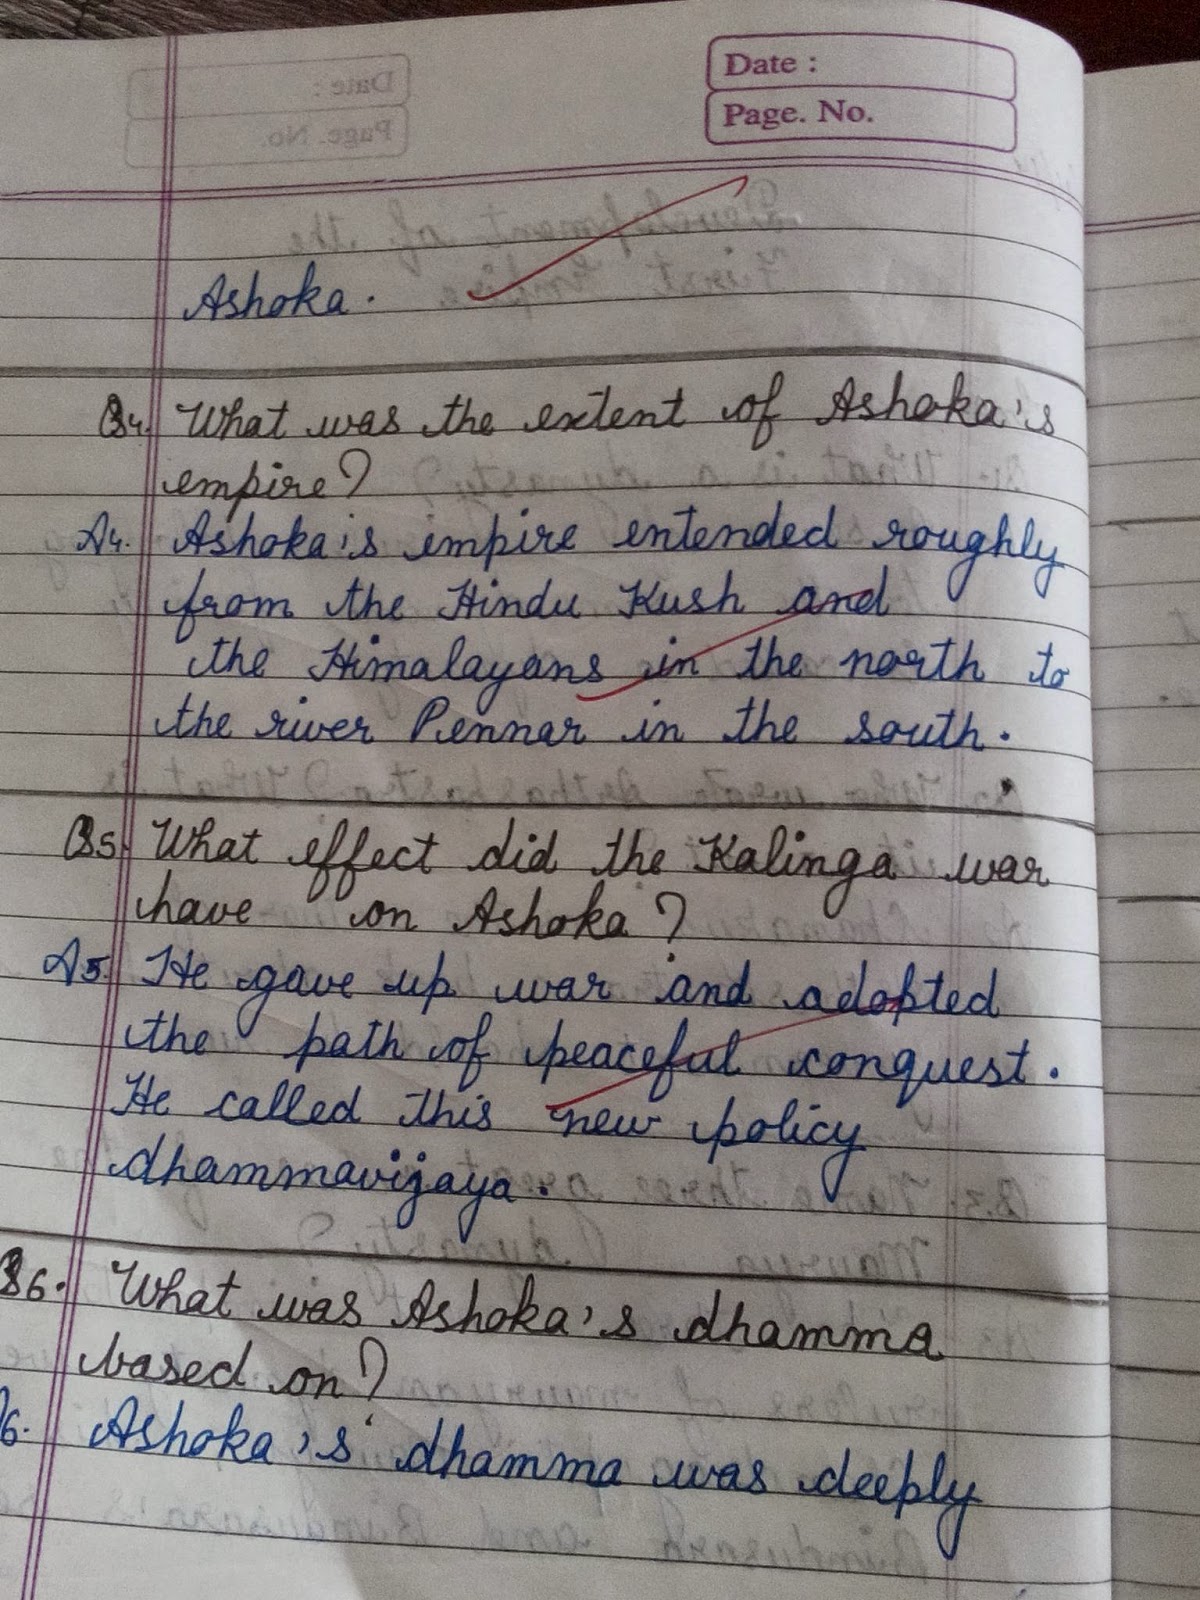 Date :
Page. No.
Ashoka.
Q4. What was the extent of Ashoka's
empire?
A4. Ashoka's empire entended roughly
from the Hindu Kush and
the Himalayans in the north to
the river Pennar in the south.
Q5. What effect did the Kalinga war
have on Ashoka?
A5. He gave up war and adopted
the path of peaceful conquest.
He called this new policy
dhammavijaya.
Q6. What was Ashoka's dhamma
based on?
6. Ashoka's dhamma was deeply